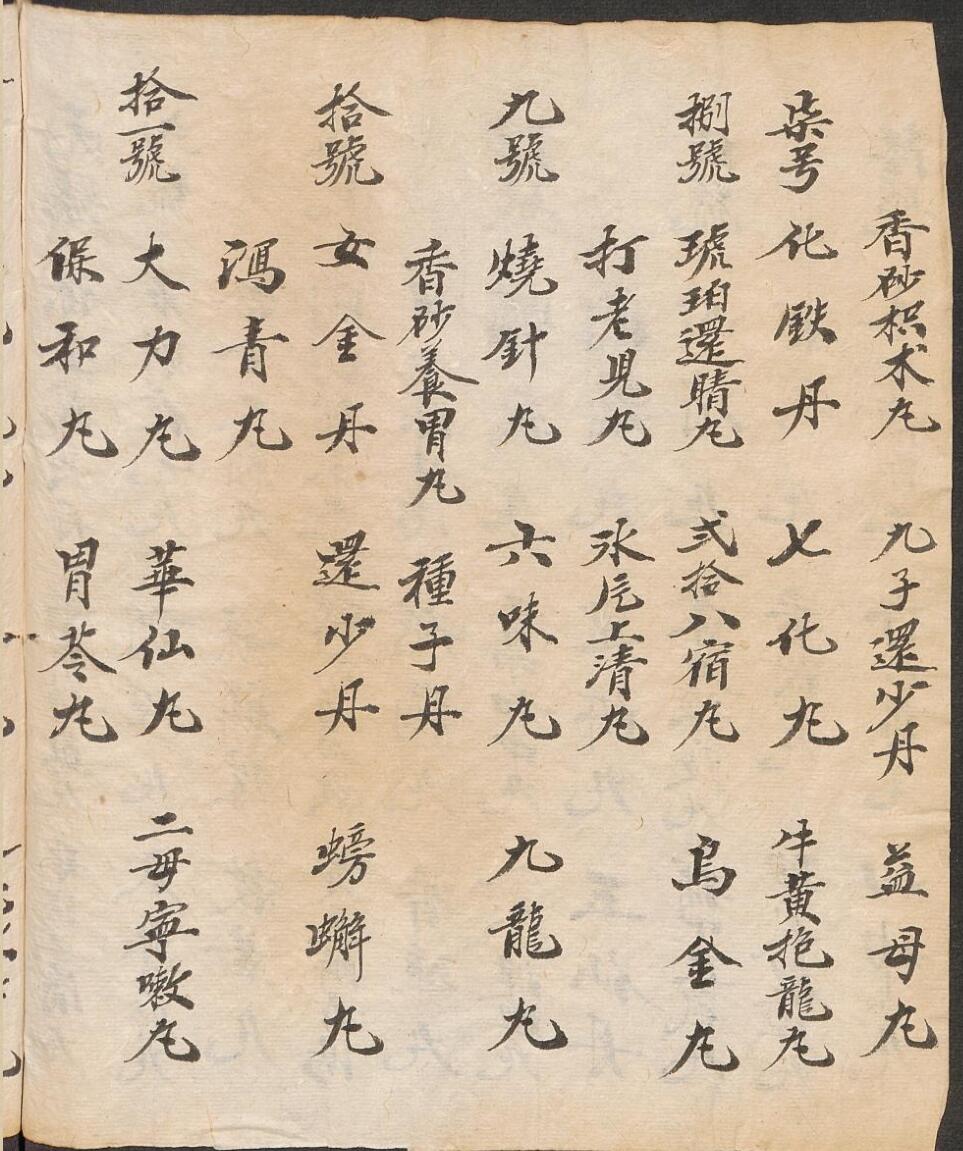 香砂枳术丸 九子還少丹 益母丸
柒号 化鉄丹 七化丸 牛黄抱龍丸
捌號 琥珀還睛丸 弍拾八宿丸 烏金丸
打老児丸 氷片上清丸
九號 燒針丸 六味丸 九龍丸
香砂養胃丸 種子丹
拾號 女金丹 還少丹 螃蠏丸
青丸
拾一號 大力丸 華仙丸 二母寧嗽丸
保和丸 胃苓丸